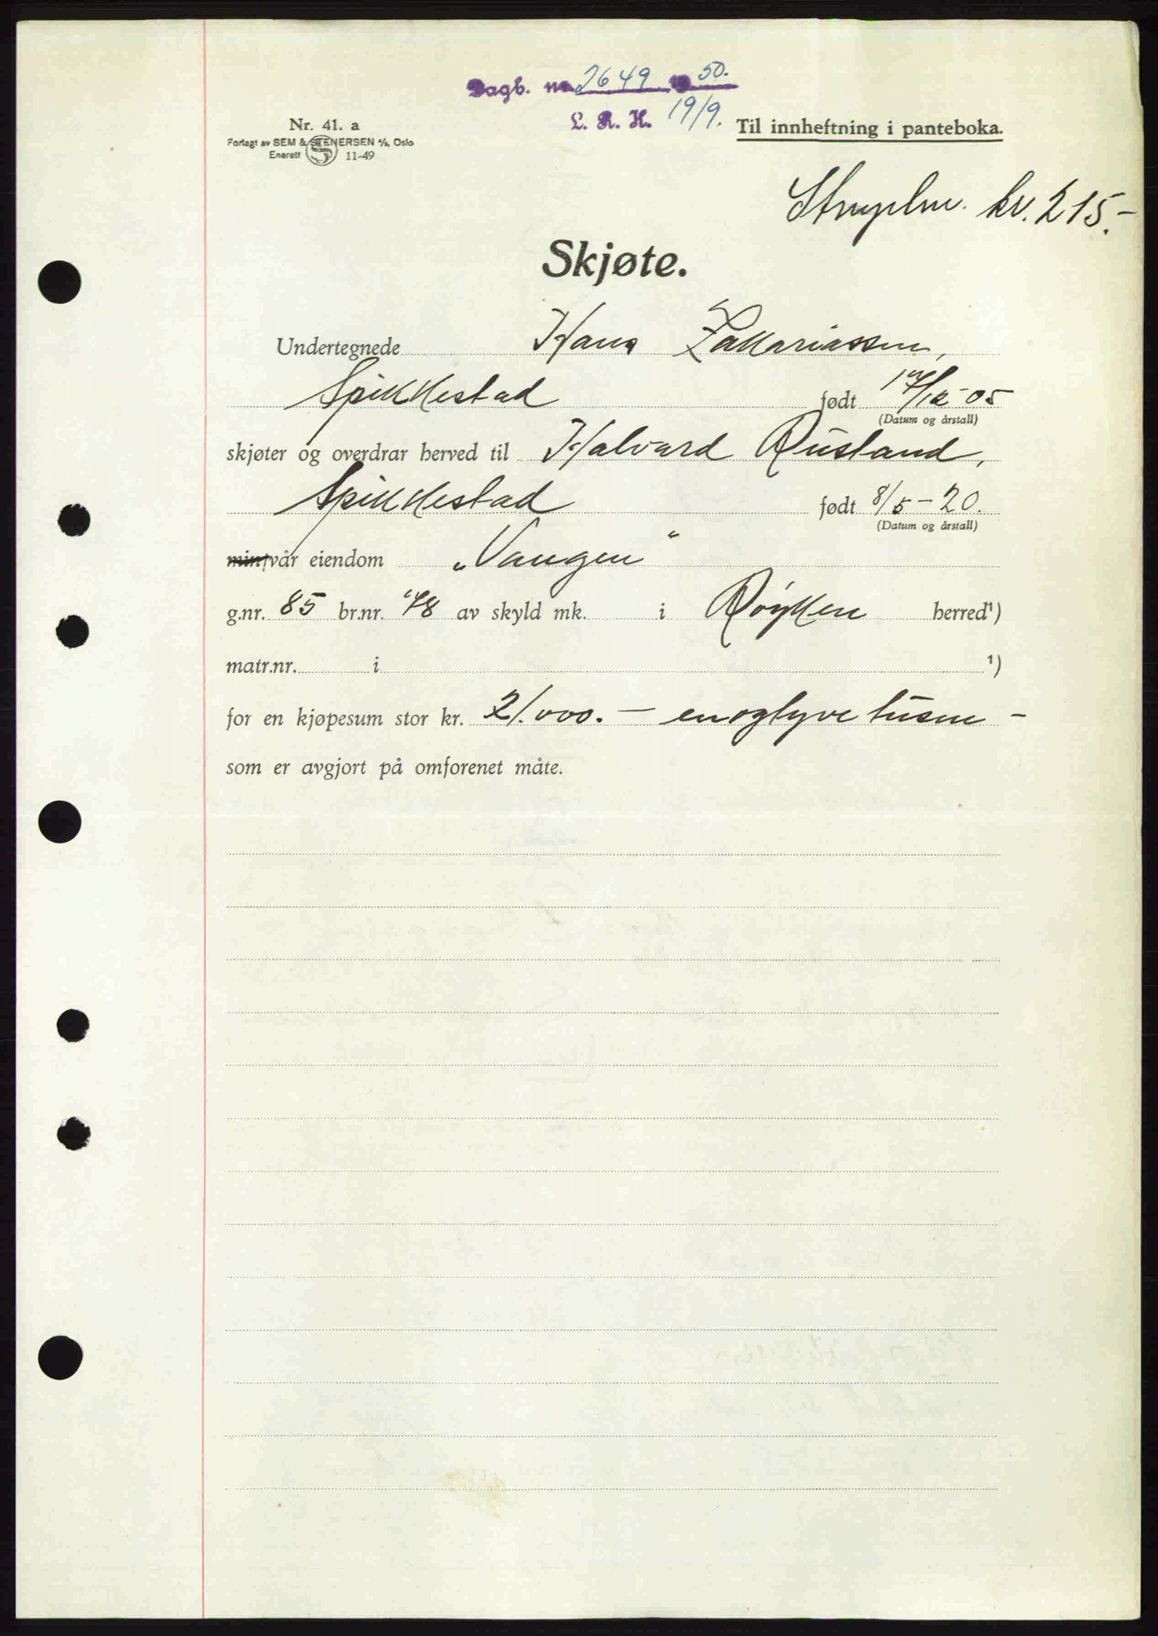 Dagb. nr. 2649 19 50.
L. R. H. 19/9.
Til innheftning i panteboka.
Nr. 41. a
Forlagt av SEM & STENERSEN A/S, Oslo
Enerett 11-49
kr. 215.-
Skjøte.
Undertegnede Hans Zakariassen,
Spikkestad født /12-05
(Datum og årstall)
skjøter og overdrar herved til Halvard Rustand,
Spikkestad født 8/5-20.
(Datum og årstall)
min/vår eiendom "Vangen"
g.nr. 85 br.nr. 48 av skyld mk. i Røyken herred¹)
matr.nr. i ¹)
for en kjøpesum stor kr. 21.000.- enogtyve tusen -
som er avgjort på omforenet måte.